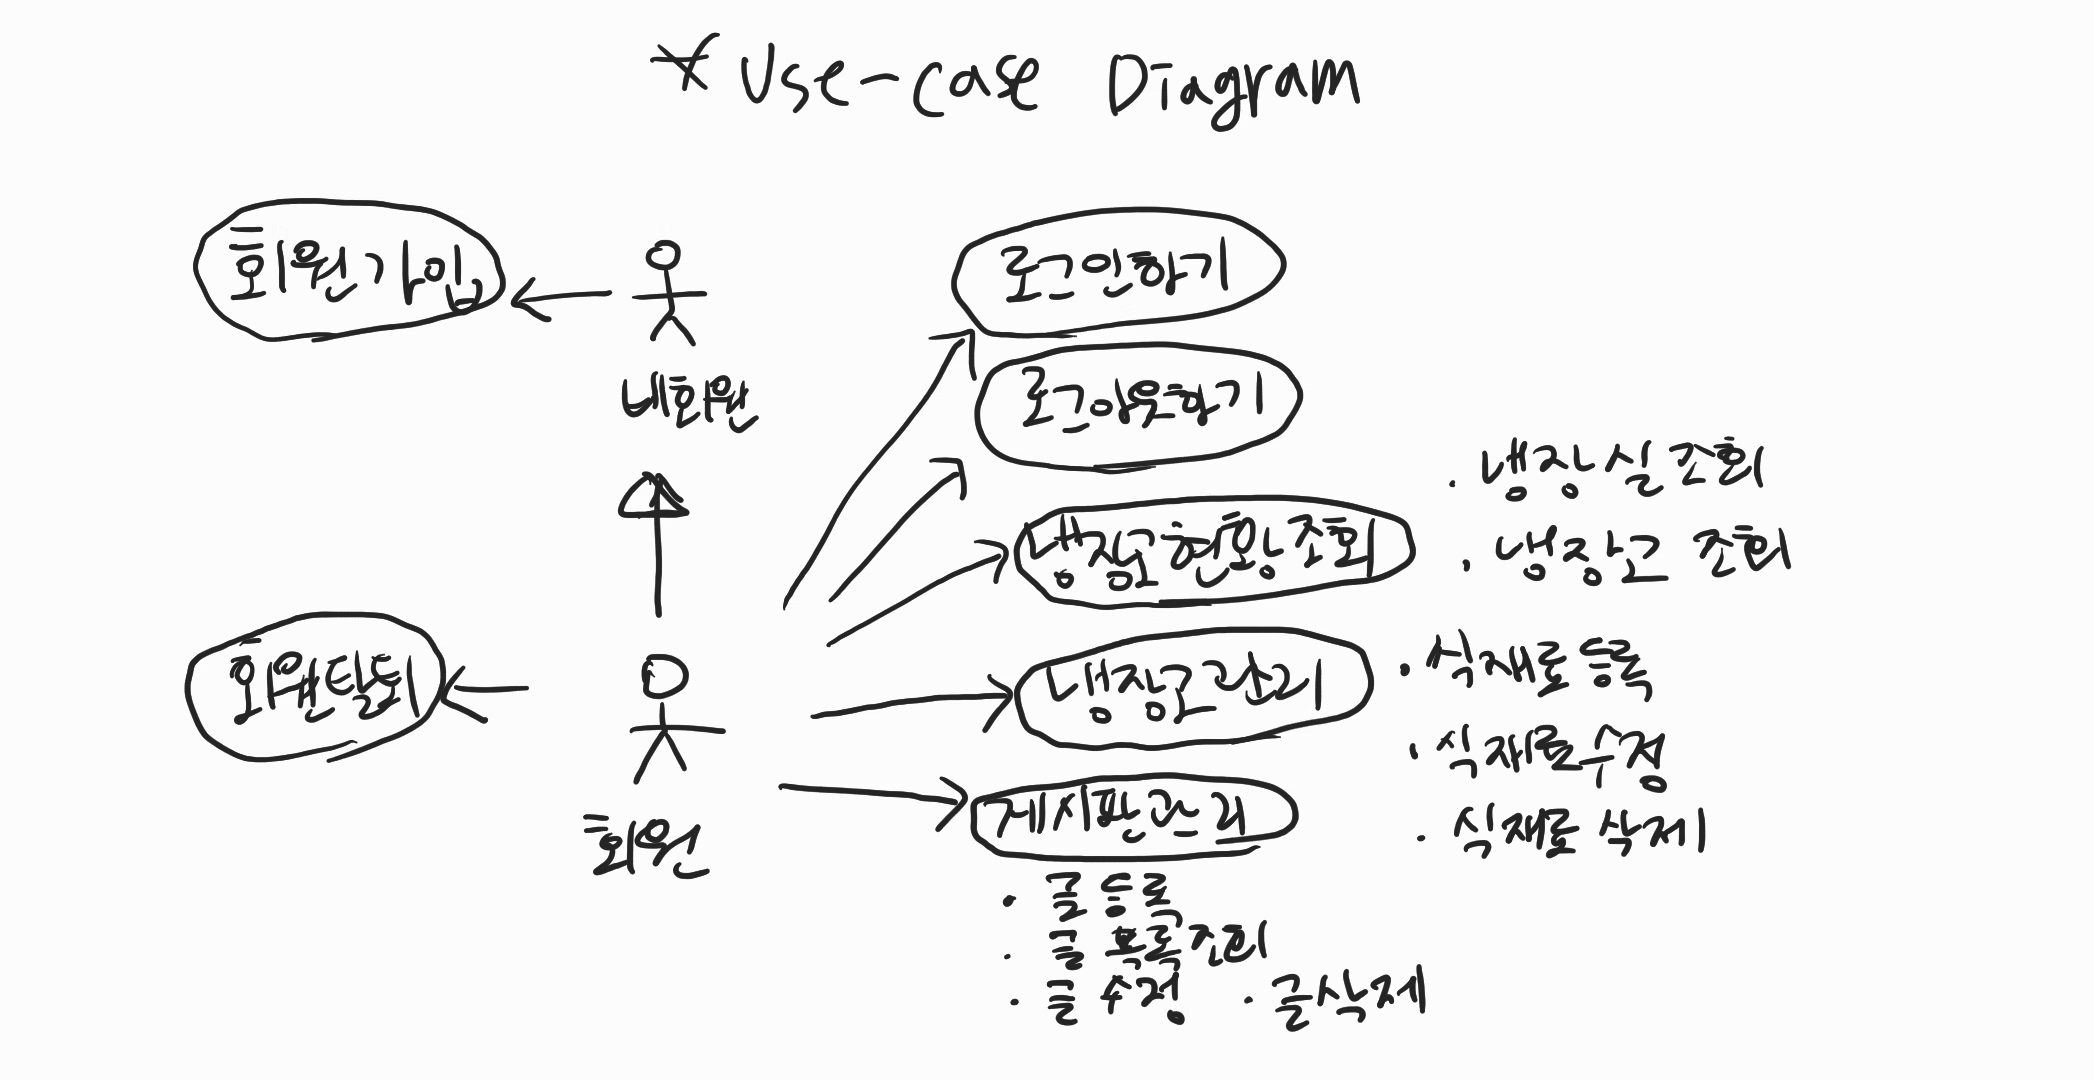 * Use-case Diagram
회원가입
비회원
로그인하기
로그아웃하기
냉장고현황조회
· 냉장실 조회
· 냉장고 조회
회원탈퇴
회원
냉장고관리
· 식재료 등록
· 식재료수정
· 식재료 삭제
게시판관리
· 글 등록
· 글 목록조회
· 글 수정 · 글삭제